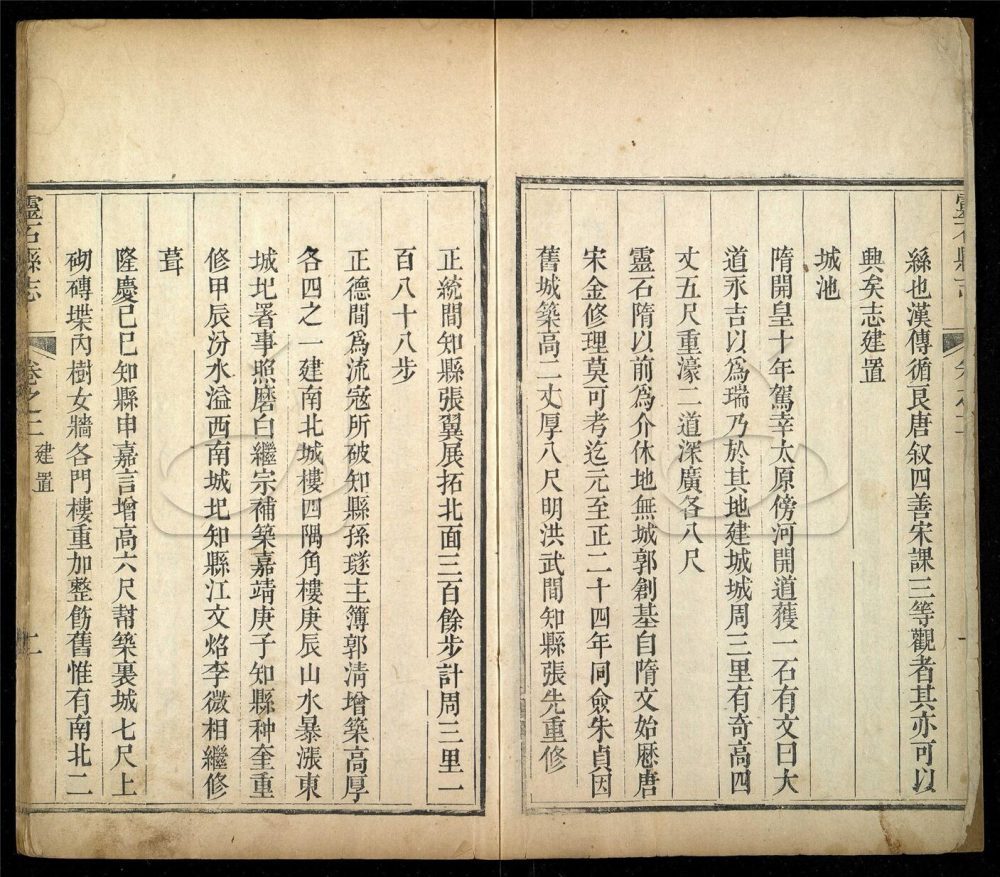 繇也漢傳循良唐叙四善宋課三等觀者其亦可以
興矣志建置
城池
隋開皇十年駕幸太原傍河開道獲一石有文曰大
道永吉以爲瑞乃於其地建城城周三里有奇高四
丈五尺重濠二道深廣各八尺
靈石隋以前爲介休地無城郭創基自隋文始厯唐
宋金修理莫可考迄元至正二十四年同僉朱貞因
舊城築高二丈厚八尺明洪武間知縣張先重修
正統間知縣張翼展拓北面三百餘步計周三里一
百八十八步
正德間爲流寇所破知縣孫璲主簿郭淸增築高厚
各四之一建南北城樓四隅角樓庚辰山水暴漲東
城圮署事照磨白繼宗補築嘉靖庚子知縣种奎重
修甲辰汾水溢西南城圮知縣江文焰李微相繼修
葺
隆慶己巳知縣申嘉言增高六尺幇築裏城七尺上
砌磚堞内樹女牆各門樓重加整飭舊惟有南北二
靈石縣志 卷之二 建置 二